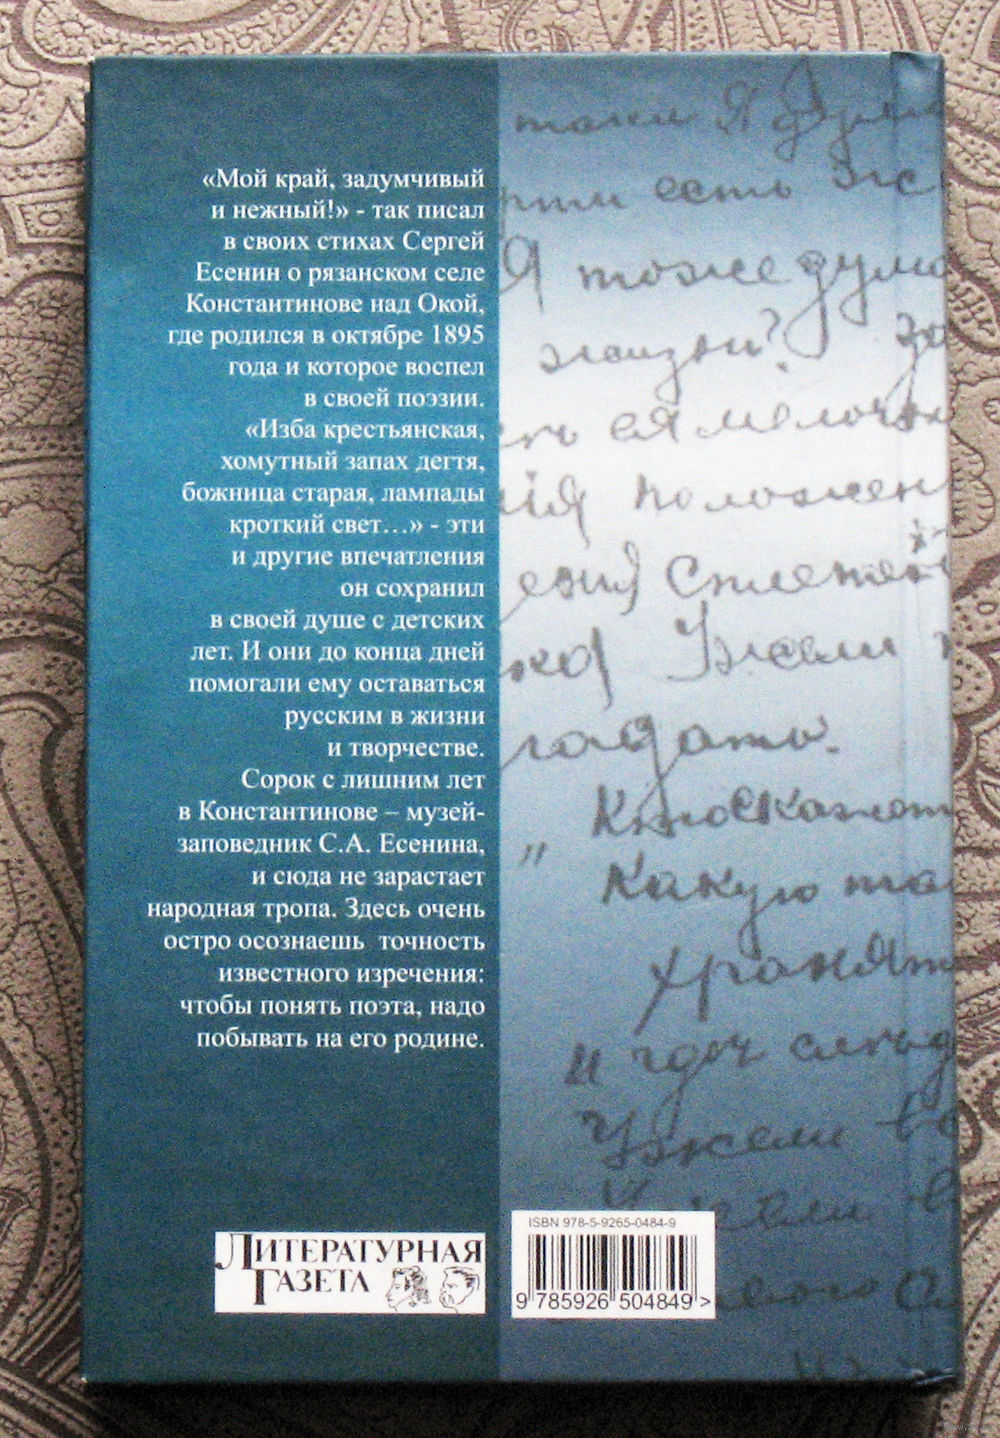 «Мой край, задумчивый
и нежный!» - так писал
в своих стихах Сергей
Есенин о рязанском селе
Константинове над Окой,
где родился в октябре 1895
года и которое воспел
в своей поэзии.
«Изба крестьянская,
хомутный запах дегтя,
божница старая, лампады
кроткий свет…» - эти
и другие впечатления
он сохранил
в своей душе с детских
лет. И они до конца дней
помогали ему оставаться
русским в жизни
и творчестве.
Сорок с лишним лет
в Константинове – музей-
заповедник С.А. Есенина,
и сюда не зарастает
народная тропа. Здесь очень
остро осознаешь точность
известного изречения:
чтобы понять поэта, надо
побывать на его родине.
ЛИТЕРАТУРНАЯ
ГАЗЕТА
таки Я
есть
Я тоже
жизни?
ея
положен
Ужели
гадать.
„
Какую
хранят
и
Ужели
ISBN 978-5-9265-0484-9
9 785926 504849 >